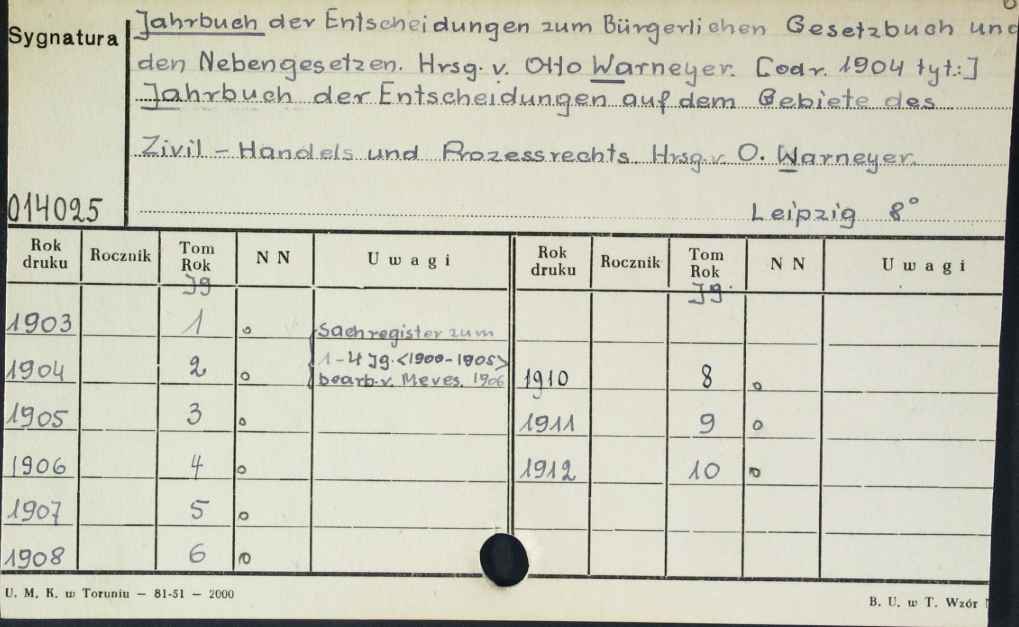 Sygnatura
014025
Jahrbuch der Entscheidungen zum Bürgerlichen Gesetzbuch und
den Nebengesetzen. Hrsg. v. Otto Warneyer. [Od r. 1904 tyt.:]
Jahrbuch der Entscheidungen auf dem Gebiete des
Zivil - Handels und Prozessrechts. Hrsg. v. O. Warneyer.
Leipzig 8°
Rok druku Rocznik Tom Rok Jg N N Uwagi Rok druku Rocznik Tom Rok Jg. N N Uwagi
1903 1 o Sachregister zum
1904 2 o 1-4 Jg. <1900-1905> 1910 8 o
bearb. v. Meves. 1906
1905 3 o 1911 9 o
1906 4 o 1912 10 o
1907 5 o
1908 6 o
U. M. K. w Toruniu - 81-51 - 2000
B. U. w T. Wzór